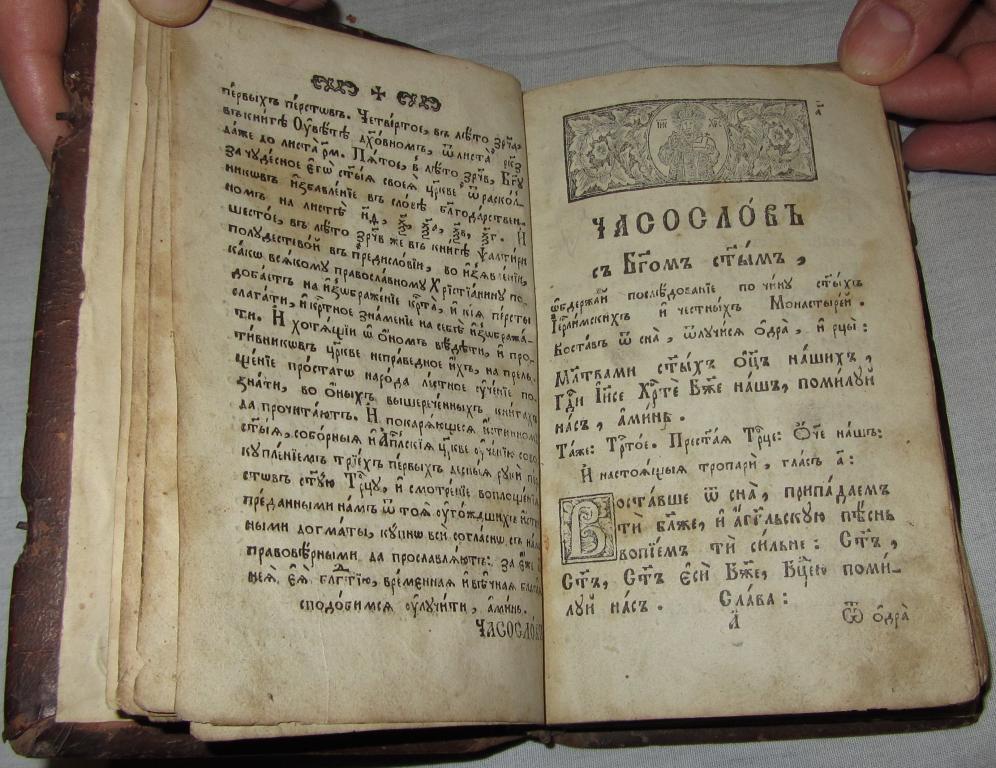 пе́рвыхъ пе́рстѡвъ. Четве́ртое, въ лѣ́то ҂зрч҃а,
въ кни́гѣ Оувѣ́тѣ дх҃о́вномъ, ѿ листа̀ рк҃з
да́же до листа̀ рм҃. Пѧ́тое, в̾ лѣ́то ҂зрч҃в, Бг҃у
за чуде́сное є҆гѡ̀ ст҃ы́ѧ своеѧ̀ цр҃кве ѿ раско́л-
никѡвъ и҆збавле́нїе въ сло́вѣ блг҃ода́рствен-
номъ на листѣ̀ н҃д, И
шесто́е, въ лѣ́то ҂зрч҃в же въ кни́гѣ Ѱалти́ри
полуде́стевой въ предисло́вїи, во и҆з̾ѧвле́нїи,
ка́кѡ всѧ́кому правосла́вному Хрїстїа́нину по-
доба́етъ на и҆з̾ѡбраже́нїе крⷭ҇та̀, и҆ кі́ѧ пе́рсты
слага́ти, и҆ крⷭ҇тное зна́менїе на себѣ̀ и҆з̾ѡбража́-
ти. И хотѧ́щїи ѡ҆ о҆но́мъ вѣ́дѣти, и҆ про-
ти́вникѡвъ цр҃кве непра́ведное и҆́хъ, на прель-
ще́нїе простагѡ̀ наро́да ле́стное оу҆че́нїе по-
зна́ти, во о҆ны́хъ вышерече́нныхъ кни́гахъ
да прочита́ютъ. И покарѧ́ющесѧ и҆́стинному
ст҃ы́ѧ, собо́рныѧ и҆ Апⷭ҇лскїѧ цр҃кве оу҆че́нїю сово-
купле́нїемъ трїе́хъ пе́рвыхъ десны́ѧ рукѝ пер-
стѡ́въ ст҃у́ю Трⷪ҇цу, и҆ смотре́нїе воплоще́нїѧ
пре́данными на́мъ ѿ тоѧ̀ оу҆гожда́шихъ и҆́сти-
ными до́гматы, ку́пнѡ вси̂ согла́снѡ съ на́ми
правовѣ́рными да прославлѧ́ютъ: за є҆́же
неѧ̀ є҆ѧ̀ блгⷣтїю, вре́меннаѧ и҆ вѣ́чнаѧ блага́ѧ
сподо́бимсѧ оу҆лучи́ти, а҆ми́нь.
ЧАСОСЛО́ВЪ
ІИС ХРС
ЧАСОСЛО́ВЪ
съ Бг҃омъ ст҃ы́мъ,
ѡ҆бдержа́й послѣ́дованїе по чи́ну ст҃ы́хъ
Іерⷭ҇ли́мскихъ и҆ че́стныхъ Монастыре́й.
Воста́въ ѿ сна̀, ѿлучи́сѧ о҆дра̀, и҆ рцы̀:
Мл҃твами ст҃ы́хъ ѻ҆ц҃ъ на́шихъ,
Гдⷭ҇и Іи҃се Хрⷭ҇тѐ Бж҃е на́шъ, поми́луй
на́съ, а҆ми́нь.
Та́же: Трⷭ҇то́е. Прест҃а́ѧ Трⷪ҇це: Ѻ҆́ч҃е на́шъ:
И настоѧ́щыѧ тропари̂, гла́съ а҃:
Воста́вше ѿ сна̀, припа́даемъ
тѝ бл҃же, и҆ а҆́гг҃льскую пѣ́снь
вопїе́мъ тѝ си́льне: Ст҃ъ,
Ст҃ъ, Ст҃ъ є҆сѝ Бж҃е, Бцⷣею поми́-
луй на́съ. Сла́ва:
А҃ Ѿ о҆дра̀